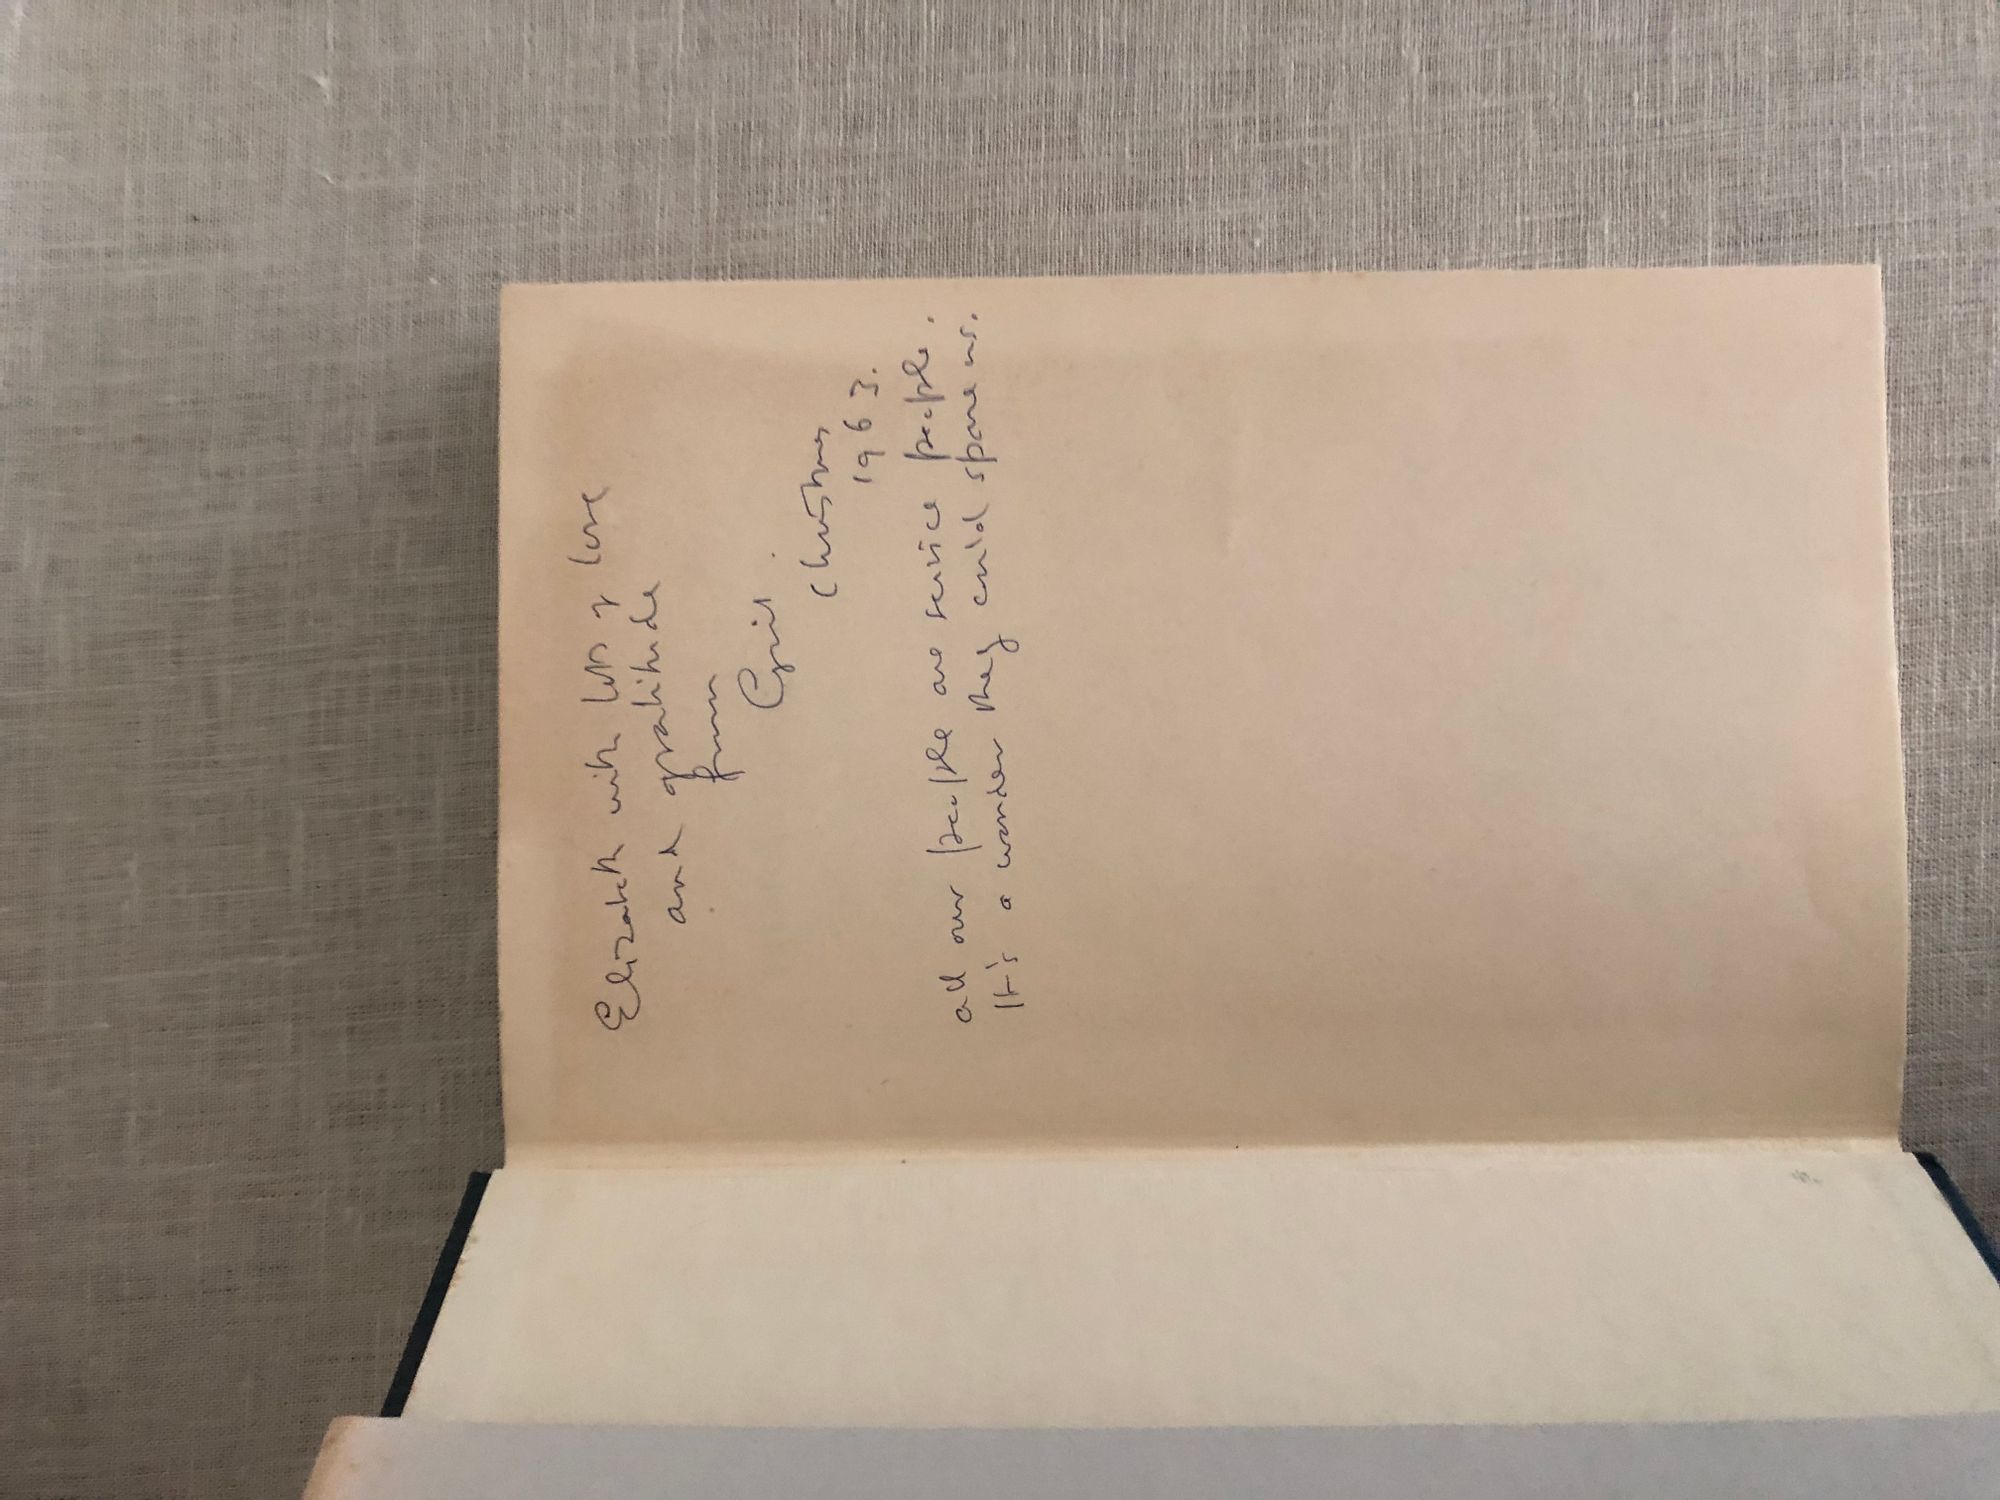 Elizabeth with lots of love
and gratitude
from
Cyril.
Christmas
1963.
all our people are service people.
It's a wonder they could spare us.